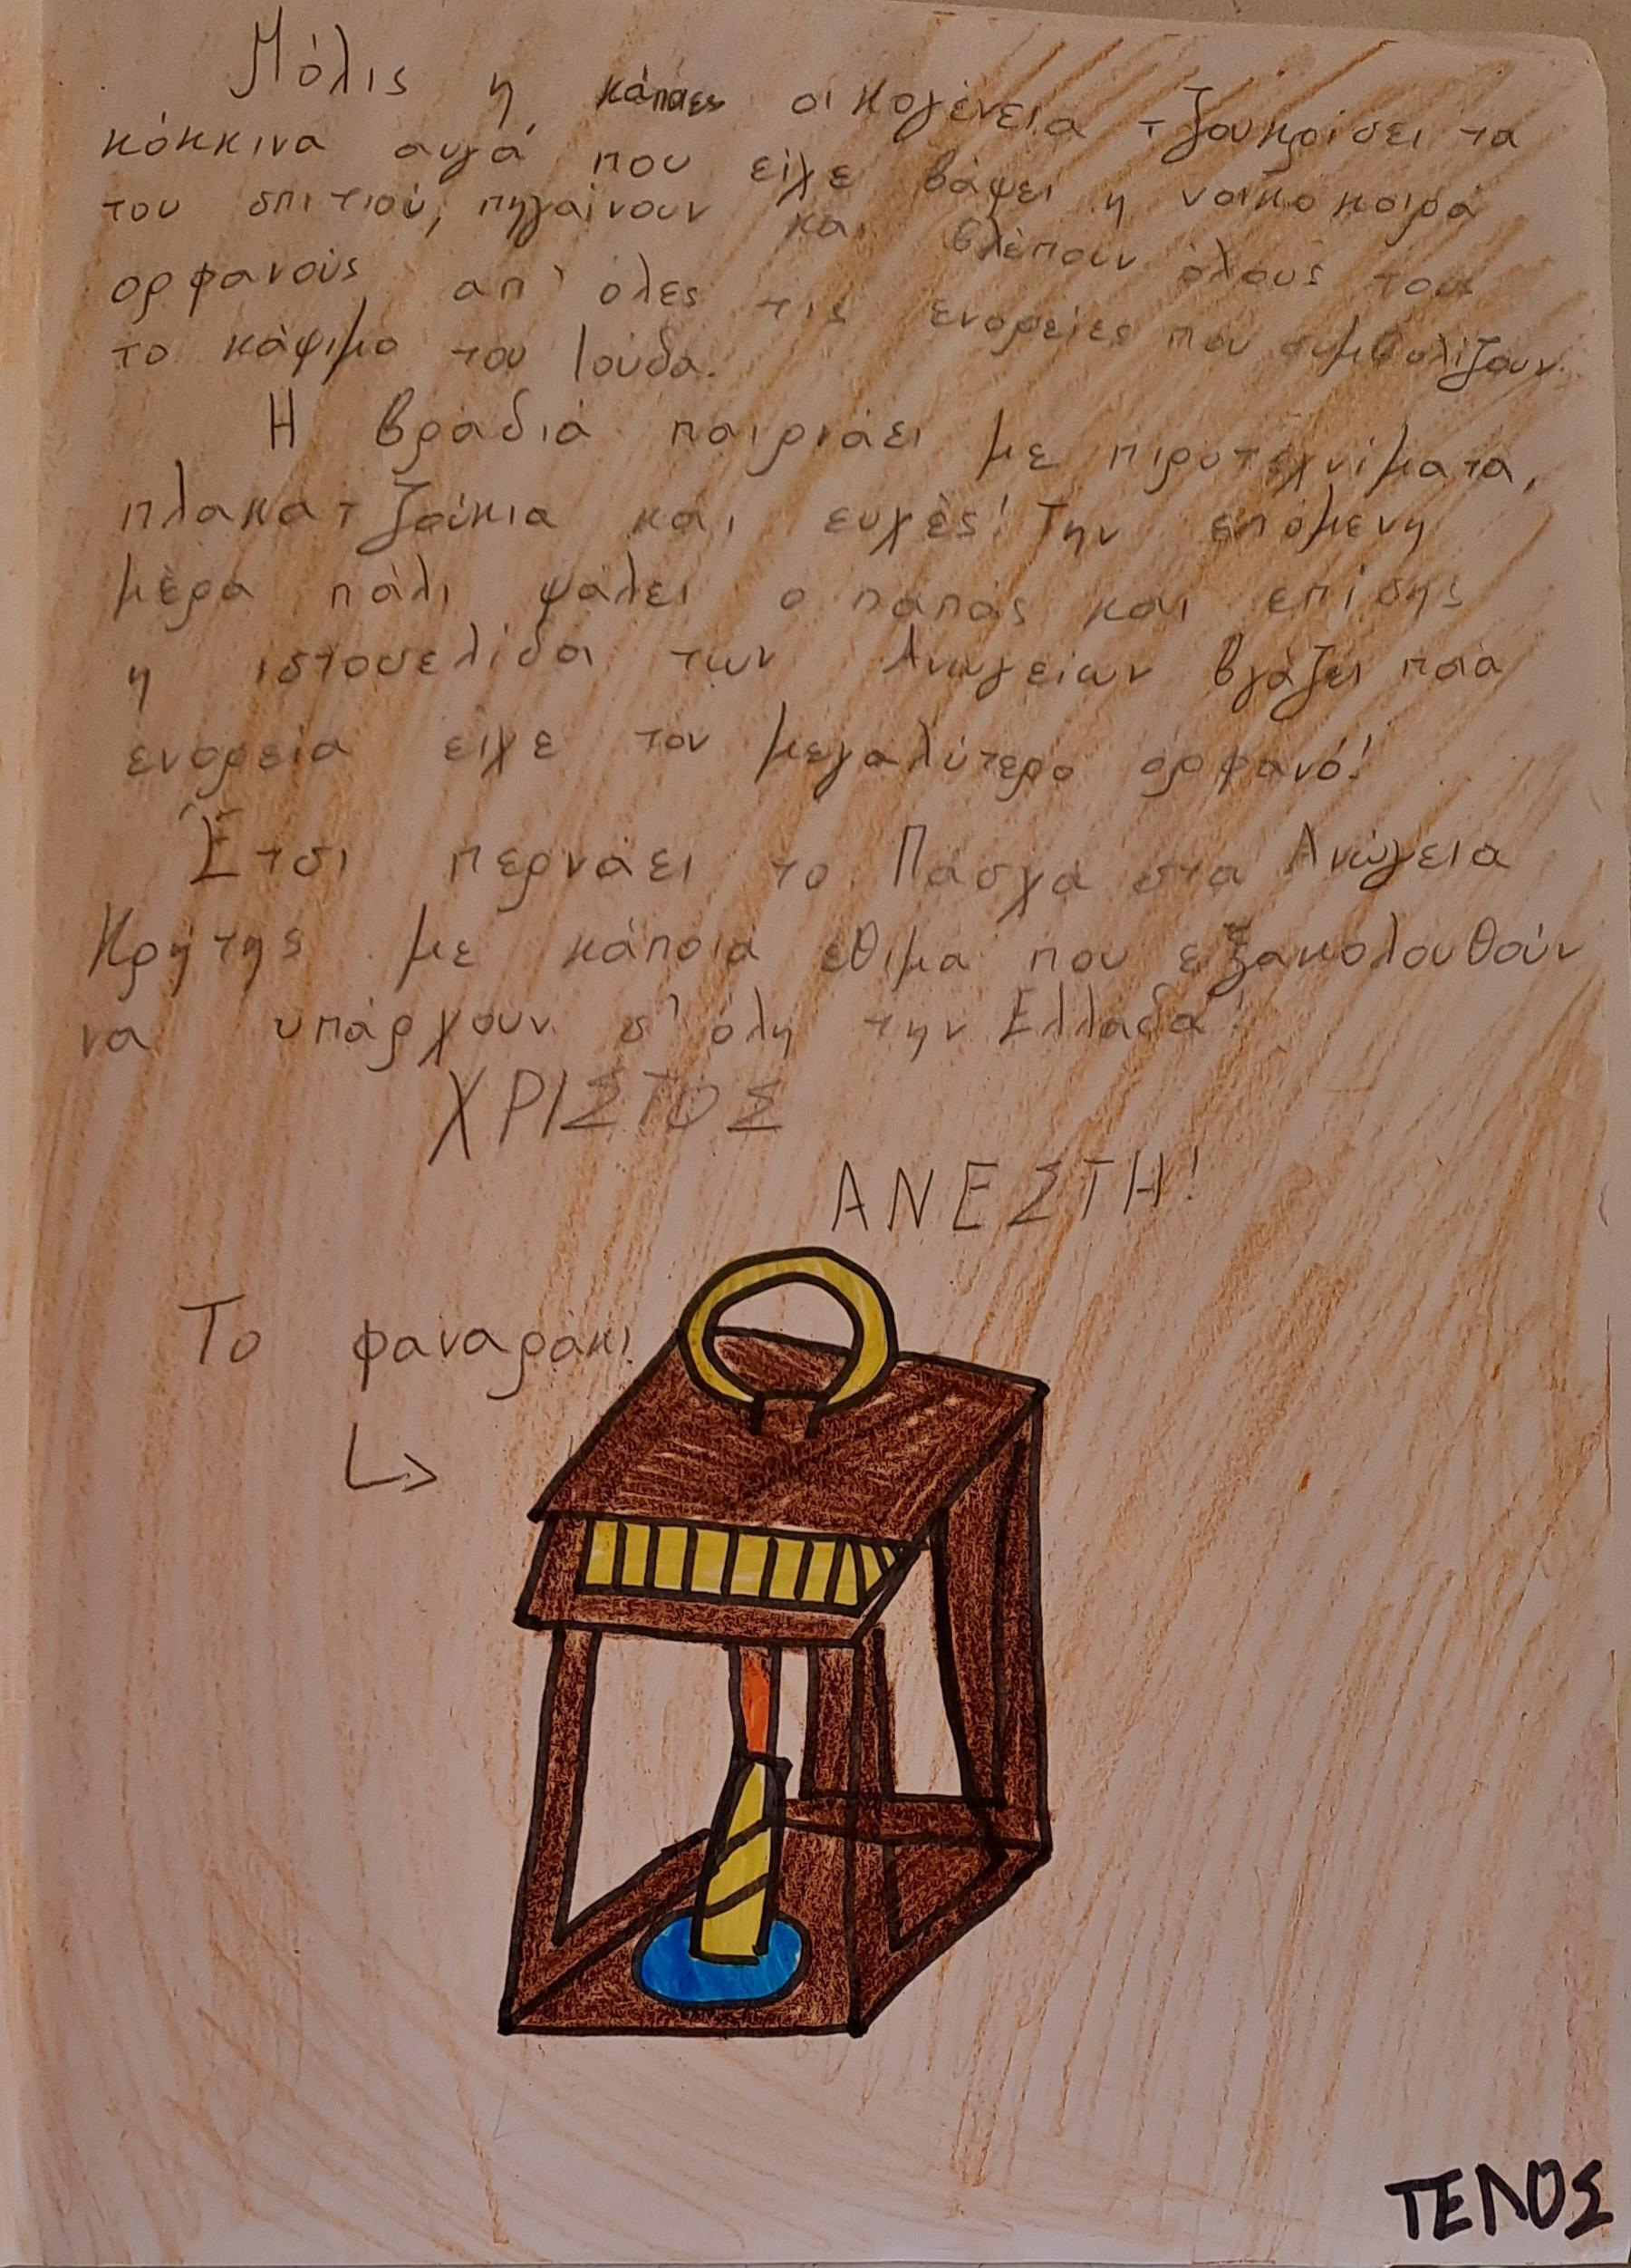 Μόλις η κάποιες οικογένεια τζουκρίσει τα
κόκκινα αυγά που είχε βάψει η νοικοκοιρά
του σπιτιού, πηγαίνουν και βλέπουν όλους τους
ορφανούς απ' όλες τις ενορείες που συμβολίζουν
το κάψιμο του Ιούδα.
Η βραδιά παιρνάει με πιροτεχνίματα,
πλακατζούκια και ευχές! Την επόμενη
μέρα πάλι ψάλει ο παπάς και επίσης
η ιστοσελίδα των Ανωγείων βγάζει ποια
ενορεία είχε τον μεγαλύτερο ορφανό!
Έτσι περνάει το Πάσχα στα Ανώγεια
Κρήτης με κάποια έθιμα που εξακολουθούν
να υπάρχουν σ' όλη την Ελλάδα!
ΧΡΙΣΤΟΣ
ΑΝΕΣΤΗ!
Το φαναράκι
ΤΕΛΟΣ